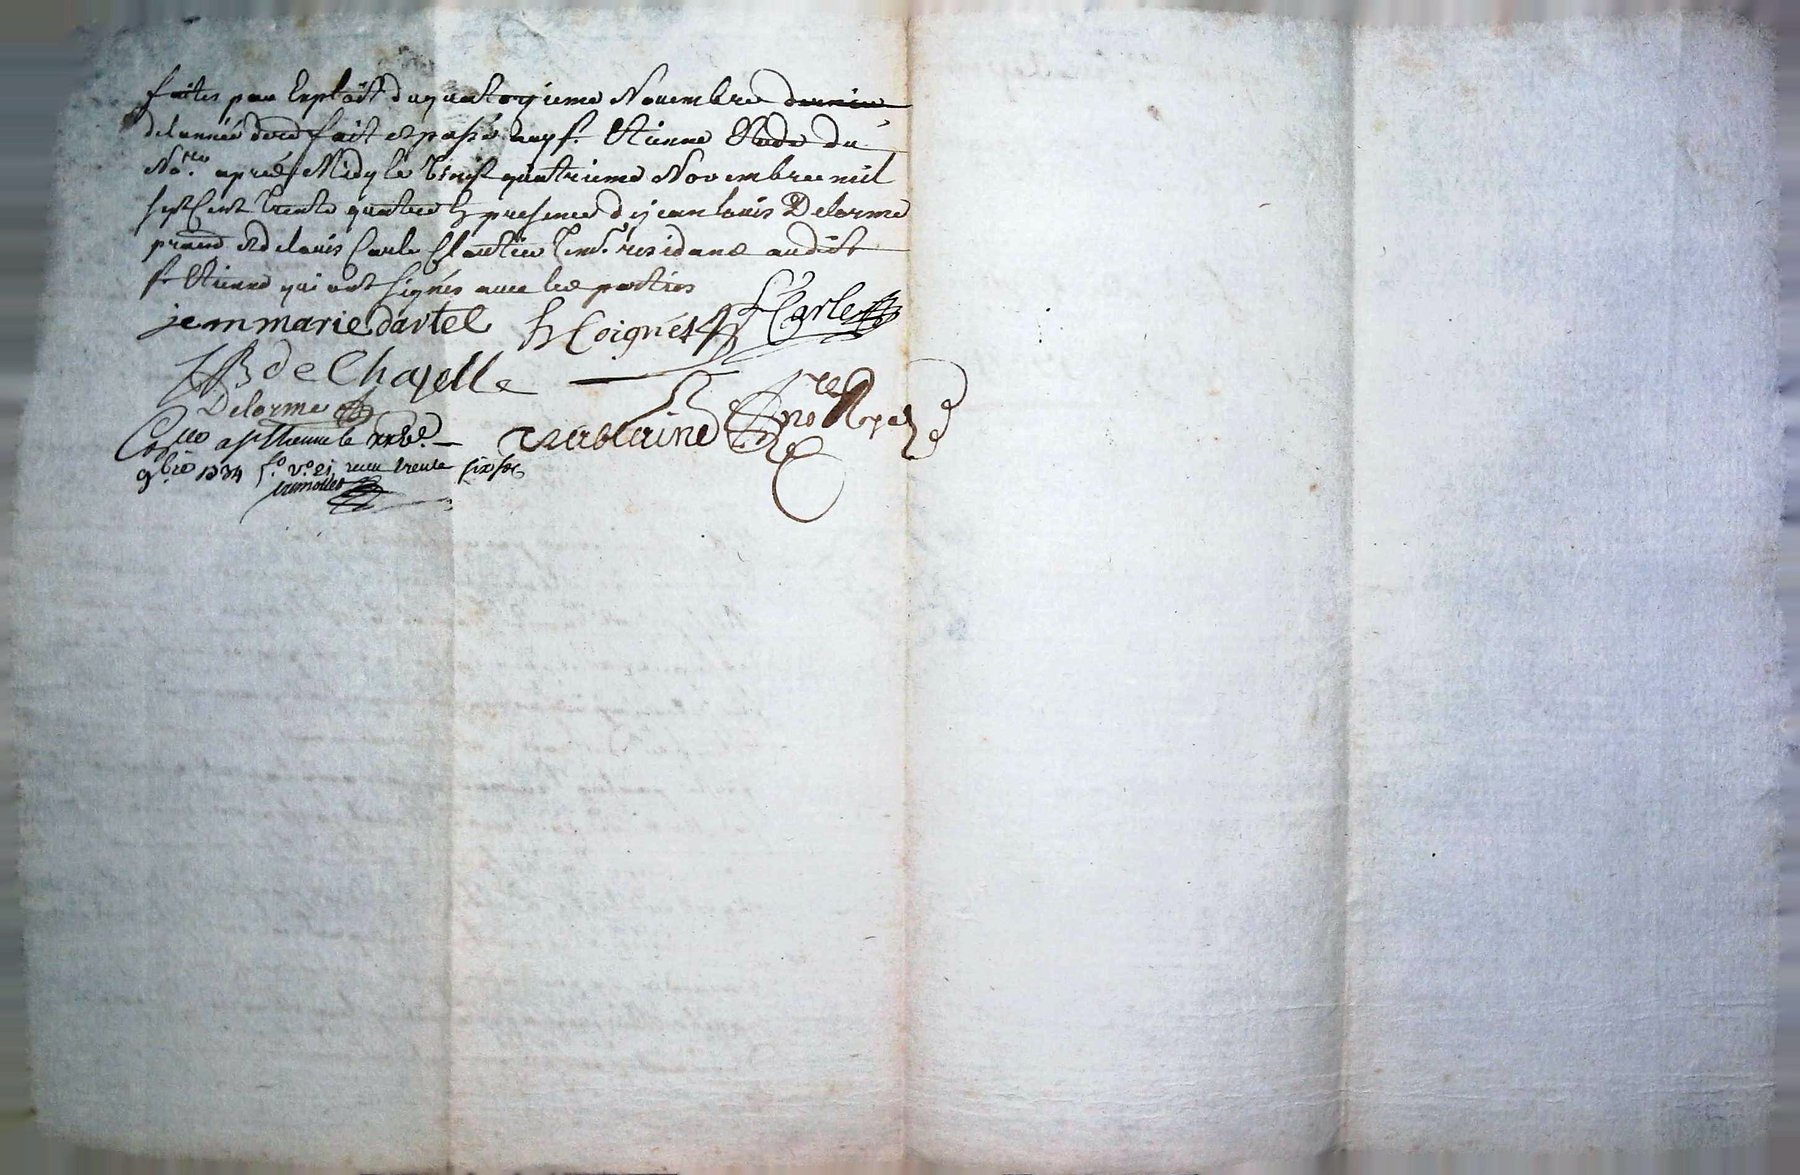 faites par Exploit du quatorzieme Novembre dernier
de lannée derre fait et passé au st. Etienne Etude du
No.re après Midy le vingt quatrieme Novembre mil
sept Cent trente quatre En presence de jean louis Delorme
praticn et de louis Carle Cloutier temt. residans audit
st Etienne qui ont signés avec les parties
jemmarie dartel h Coignet L Carle
JB de Chapelle
Delorme no.re Royal
Con.llé a st Etienne le xxve.
9bre 1734 fo. vo. 21 recu trente six sols